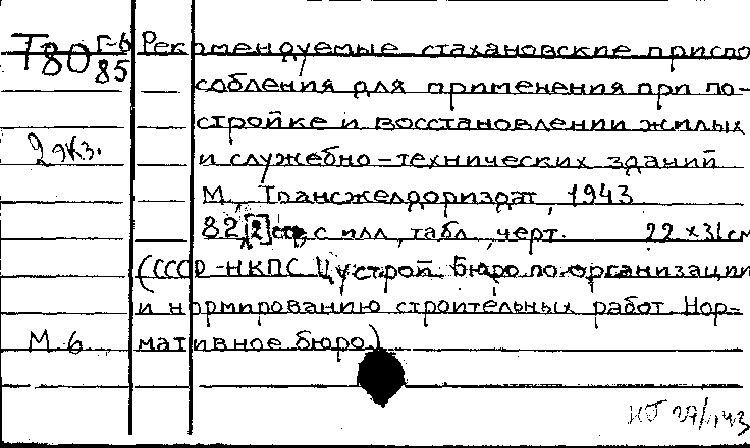 Т80 Г-6 85
Рекомендуемые стахановские приспо
собления для применения при по-
стройке и восстановлении жилых
2 экз.
и служебно-технических зданий
М., Трансжелдориздат, 1943
82,[2] стр. с илл., табл., черт. 22 x 31 см
(СССР-НКПС Цустрой. Бюро по организации
и нормированию строительных работ. Нор-
М.б. мативное бюро.)